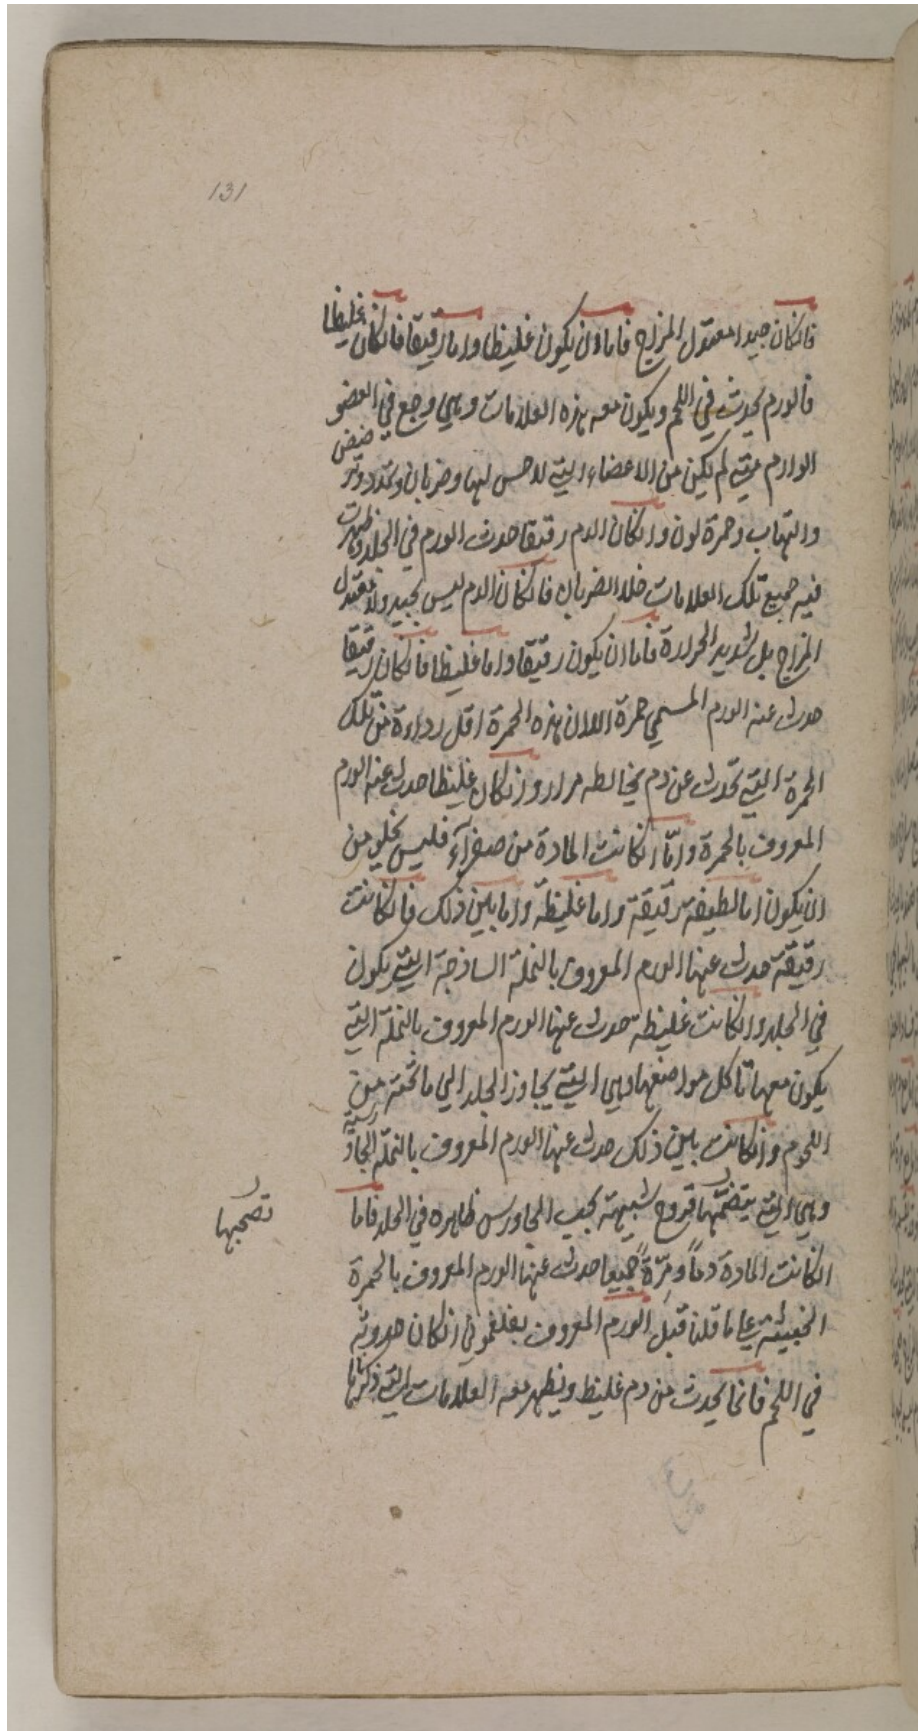 131
فانكان جيدا معتدل المزاج فاما ان يكون غليظا واما رقيقا فانكان غليظا
فالورم يحدث في اللحم ويكون معه هذه العلامات وهي وجع في العضو
الوارم متى لم يكن من الاعضاء التي لا حس لها وضربان وتمدد
والتهاب وحمرة لون وانكان الدم رقيقا حدث الورم في الجلد وظهرت
فيه جميع تلك العلامات خلا الضربان فانكان الدم ليس بجيد ولا معتدل
المزاج بل شديد الحرارة فاما ان يكون رقيقا واما غليظا فانكان رقيقا
حدث عنه الورم المسمي حمرة الا ان هذه الحمرة اقل رداءة من تلك
الحمرة التي تحدث عن دم يخالطه مرار وانكان غليظا حدث عنه الورم
المعروف بالحمرة وامّا انكانت المادة من صفرآء فليس يخلو من
ان يكون اما لطيفة رقيقة واما غليظة واما بين ذلك فانكانت
رقيقة حدث عنها الورم المعروف بالنملة الساذجة التي يكون
في الجلد وانكانت غليظة حدث عنها الورم المعروف بالنملة التي
يكون معها تاكل مواضعها وهي التي يجاوز الجلد الي ما تحته من
اللحوم وانكانت بين ذلك حدث عنها الورم المعروف بالنملة الجاورسية
وهي التي قروح شبيهة بحب الجاورس ظاهره في الجلد فاما
تصحبها
انكانت المادة دماً ومرّةً جميعا حدث عنها الورم المعروف بالحمرة
الخبيثة علي ما قلنا قبل الورم المعروف بفلغموني انكان حدوثه
في اللحم فانما يحدث من دم غليظ ويظهر معه العلامات التي ذكرناها